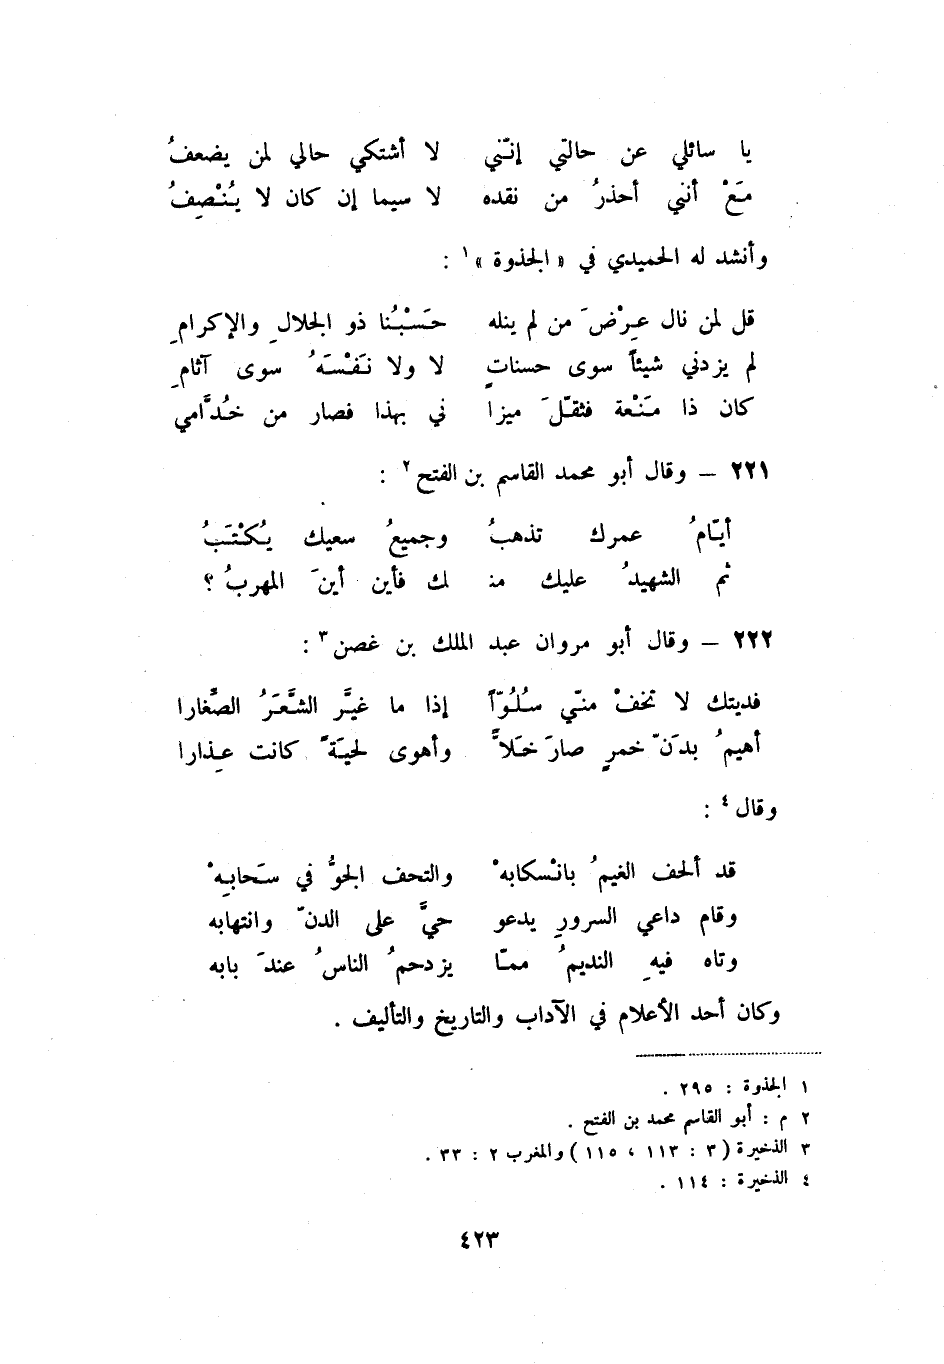 يا سائلي عن حالتي إنّني لا أشتكي حالي لمن يضعفُ
مَعْ أنني أحذرُ من نقده لا سيما إن كان لا يُنْصِفُ
وأنشد له الحميدي في « الجذوة »١ :
قل لمن نال عِرْضَ من لم ينله حَسْبُنا ذو الجلالِ والإكرامِ
لم يزدني شيئاً سوى حسناتٍ لا ولا نَفْسَهُ سوى آثامِ
كان ذا مَنْعة فثقّلَ ميزا ني بهذا فصار من خُدَّامي
٢٢١ – وقال أبو محمد القاسم بن الفتح٢ :
أيّامُ عمرك تذهبُ وجميعُ سعيك يُكْتَبُ
ثم الشهيدُ عليك منـ ـك فأين أينَ المهربُ ؟
٢٢٢ – وقال أبو مروان عبد الملك بن غصن٣ :
فديتك لا تخفْ منّي سُلُوّاً إذا ما غيَّر الشَّعَرُ الصِّغارا
أهيمُ بدَنّ خمرٍ صارَ خَلاًّ وأهوى لحيَةً كانت عِذارا
وقال٤ :
قد ألحف الغيمُ بانْسكابهْ والتحف الجوُّ في سَحابِهْ
وقام داعي السرورِ يدعو حيَّ على الدنّ وانتهابه
وتاه فيهِ النديمُ ممّا يزدحمُ الناسُ عندَ بابه
وكان أحد الأعلام في الآداب والتاريخ والتأليف .
١ الجذوة : ٢٩٥ .
٢ م : أبو القاسم محمد بن الفتح .
٣ الذخيرة ( ٣ : ١١٣ ، ١١٥ ) والمغرب ٢ : ٣٣ .
٤ الذخيرة : ١١٤ .
٤٢٣